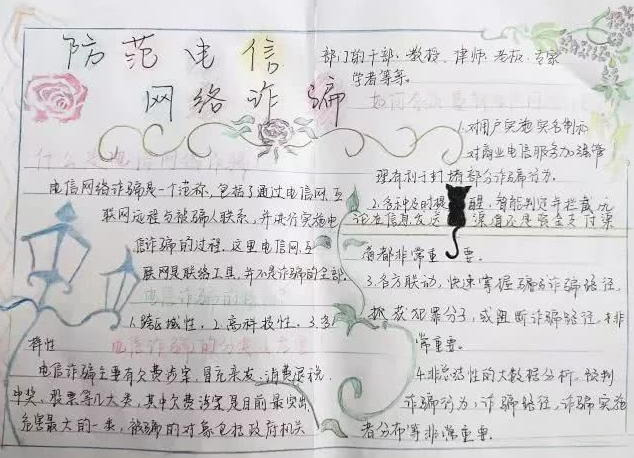 防范电信
网络诈骗
什么是电信网络诈骗
电信网络诈骗是一个范称,包括了通过电信网、互
联网远程与被骗人联系,并进行实施电
信诈骗的过程。这里电信网、互
联网是联络工具,并不是诈骗的全部。
电信诈骗的特
1.跨区域性。2.高科技性。3.多
样性
电信诈骗的分类
电信诈骗主要有欠费涉案、冒充亲友、消费退税、
中奖、股票等几大类,其中欠费涉案是目前最突出、
危害最大的一类,被骗的对象包括政府机关
部门的干部、教授、律师、老板、专家
学者等等。
如何
1.对用户实施实名制和
对商业电信服务加强管
理有利于打堵部分诈骗行为。
2.各种及时提醒,智能判定并拦截,无
论在信息发 渠道还是资金支付渠
道都非常重要。
3.各方联动,快速掌握骗的诈骗路径,
抓获犯罪分子,或阻断诈骗路径,非
常重要。
4.非总结性的大数据分析,预判
诈骗行为,诈骗路径,诈骗实施
者分布等非常重要。